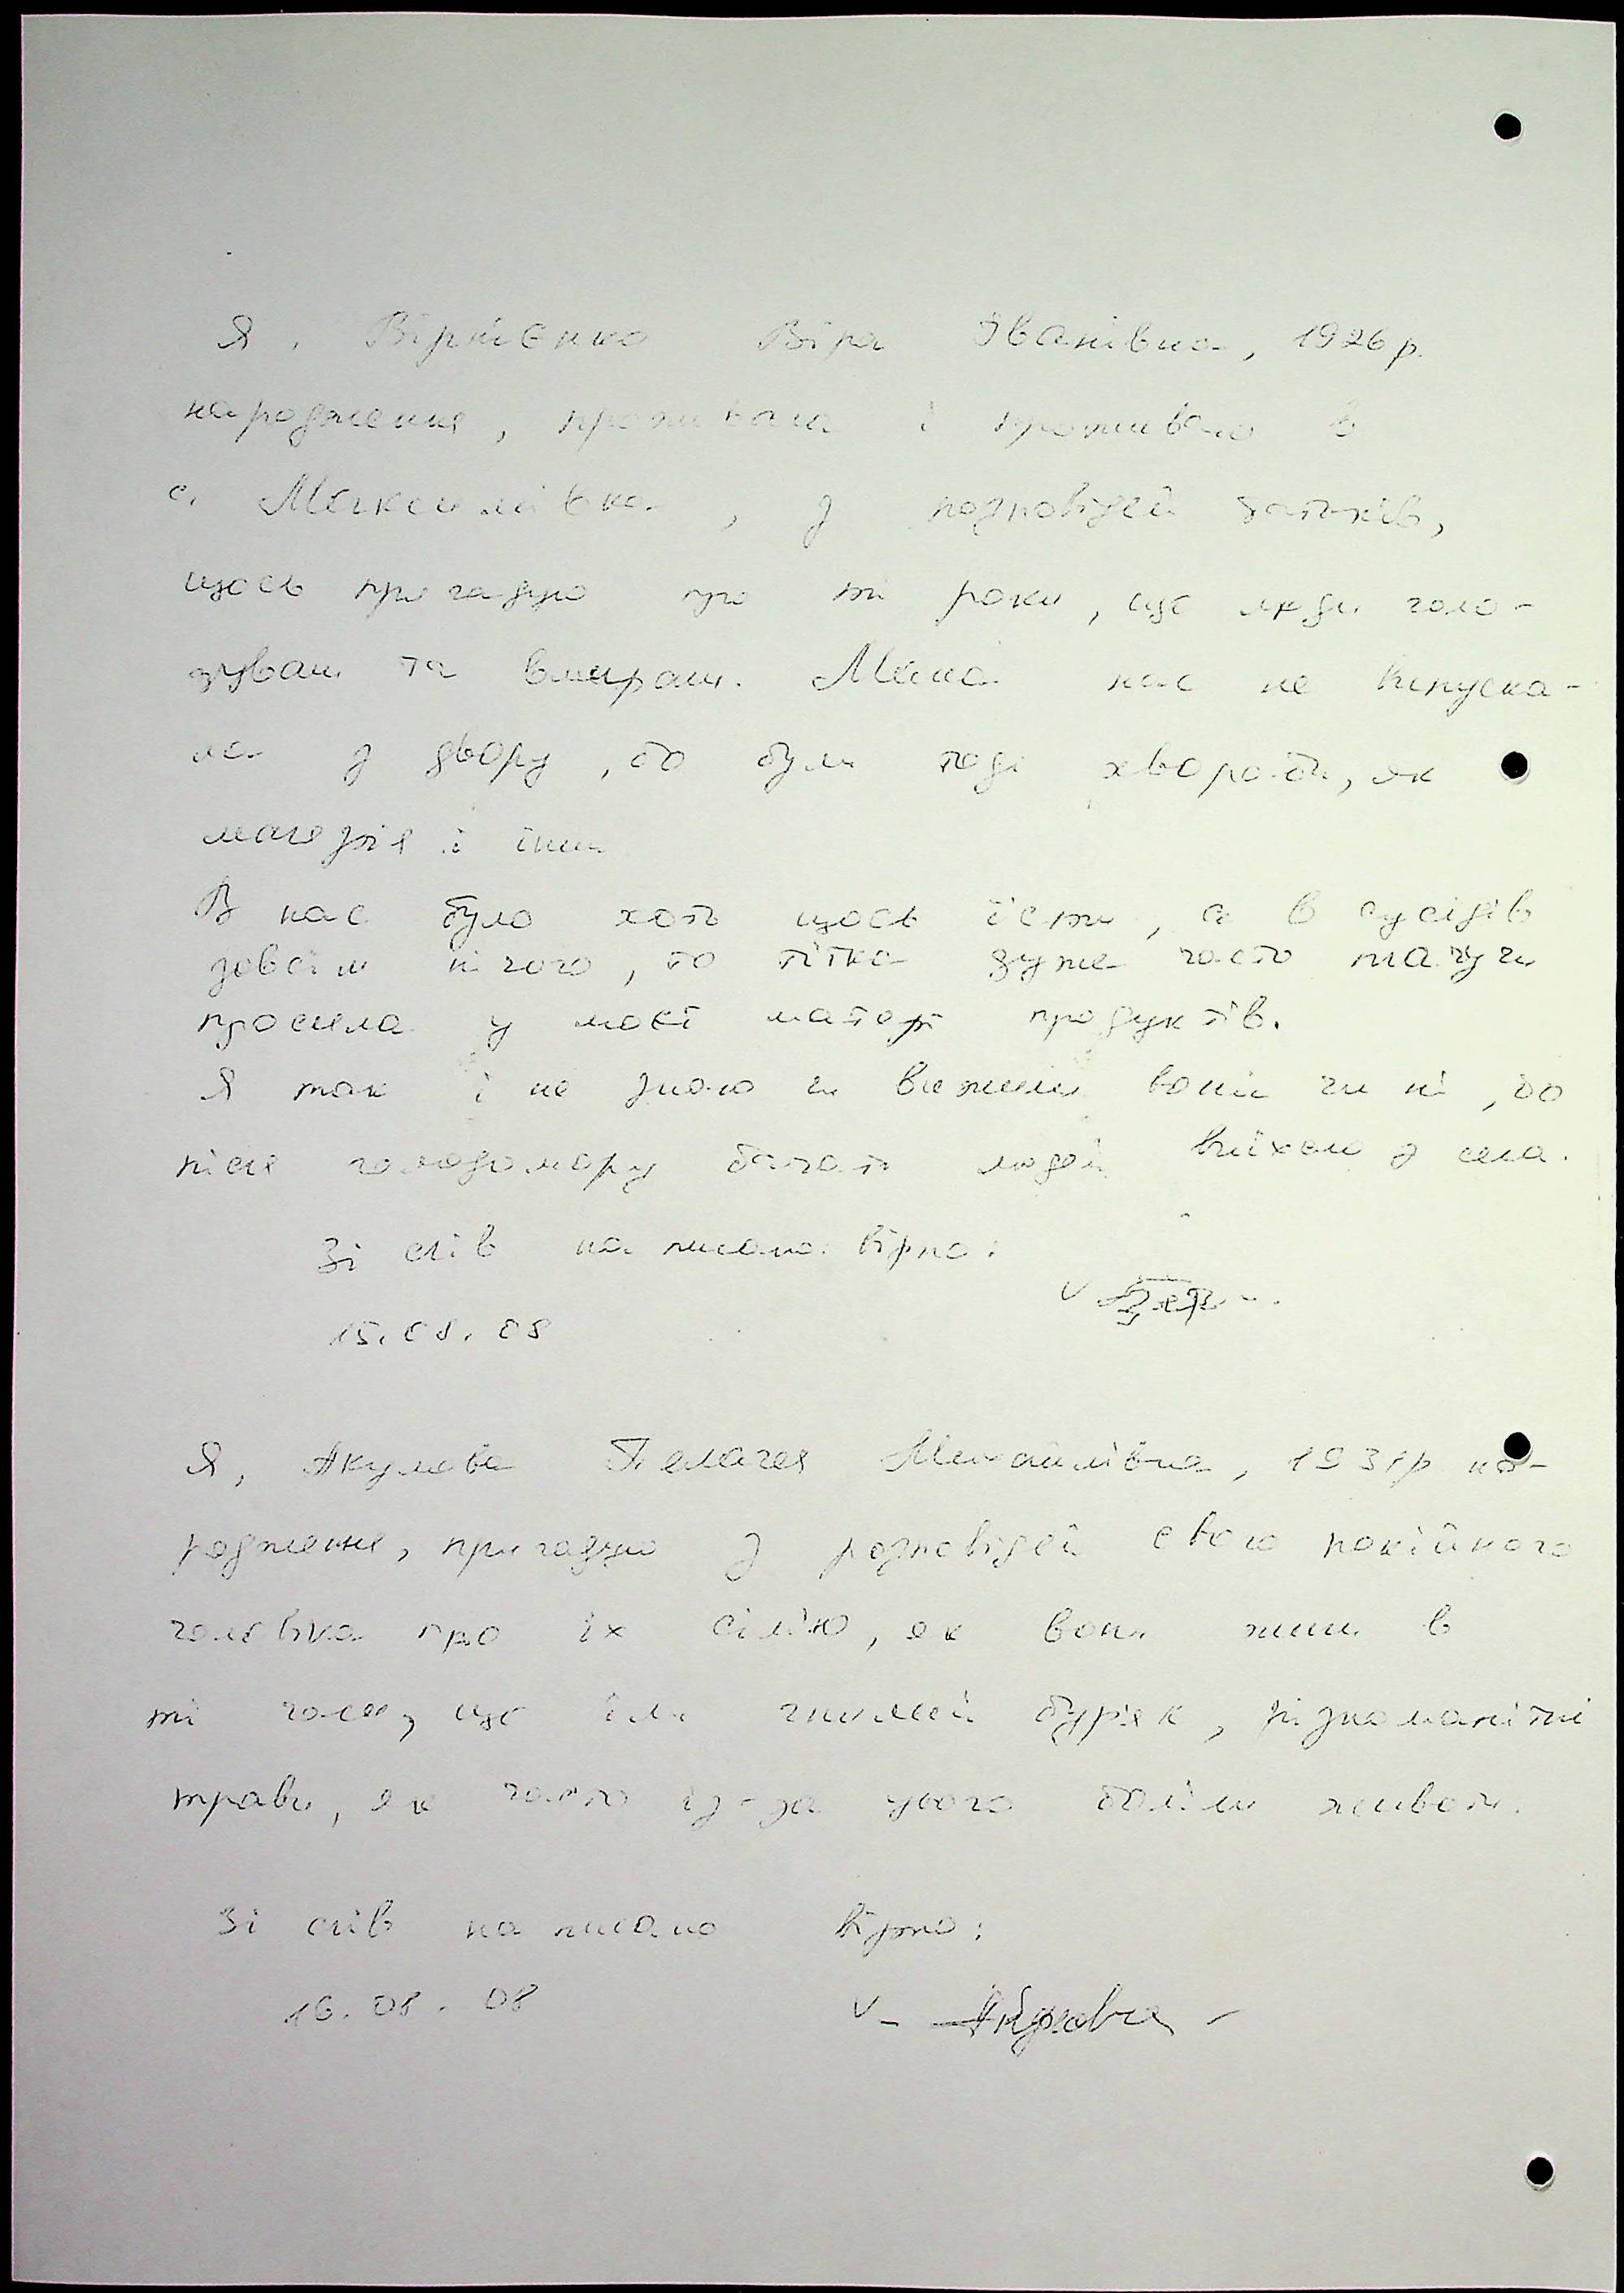 Я, Вірнієнко Віра Іванівна, 1926 р.
народження, проживала і проживаю в
с. Максимівка, з розповідей батьків,
щось пригадую про ті роки, ще люди голо-
дували та вмирали. Мама нас не випуска-
ла з двору, бо були тоді хвороби, як
малярія і інш.
В нас було хоть щось їсти, а в сусідів
зовсім нічого, то тітка дуже часто плачучи
просила у моєї матері продуктів.
Я так і не знаю чи вижили вони чи ні, бо
після голодомору багато людей виїхало з села.
Зі слів написано вірно:
15.08.08
Я, Акулова Пелагея Михайлівна, 1931р на-
родження, пригадую з розповідей свого покійного
чоловіка про їх сім'ю, як вони жили в
ті часи, ще їли гнилий буряк, різноманітні
трави, як часто із-за цього боліли животи.
Зі слів написано вірно:
16.08.08
Акулова